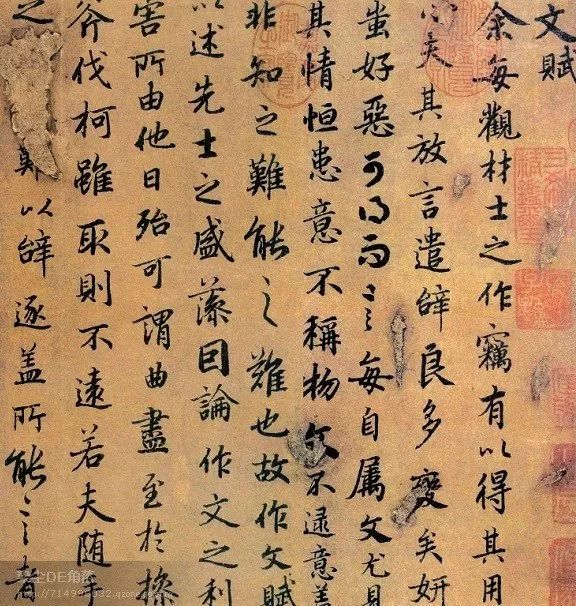 文賦
余每觀材士之作竊有以得其用
心矣其放言遣辭良多變矣妍
蚩好惡可得而言每自属文尤見
其情恒患意不稱物文不逮意盖
非知之難能之難也故作文賦
以述先士之盛藻因論作文之利
害所由他日殆可謂曲盡至於操
斧伐柯雖取則不遠若夫随手
之難以辭逐盖所能言者
DE角落